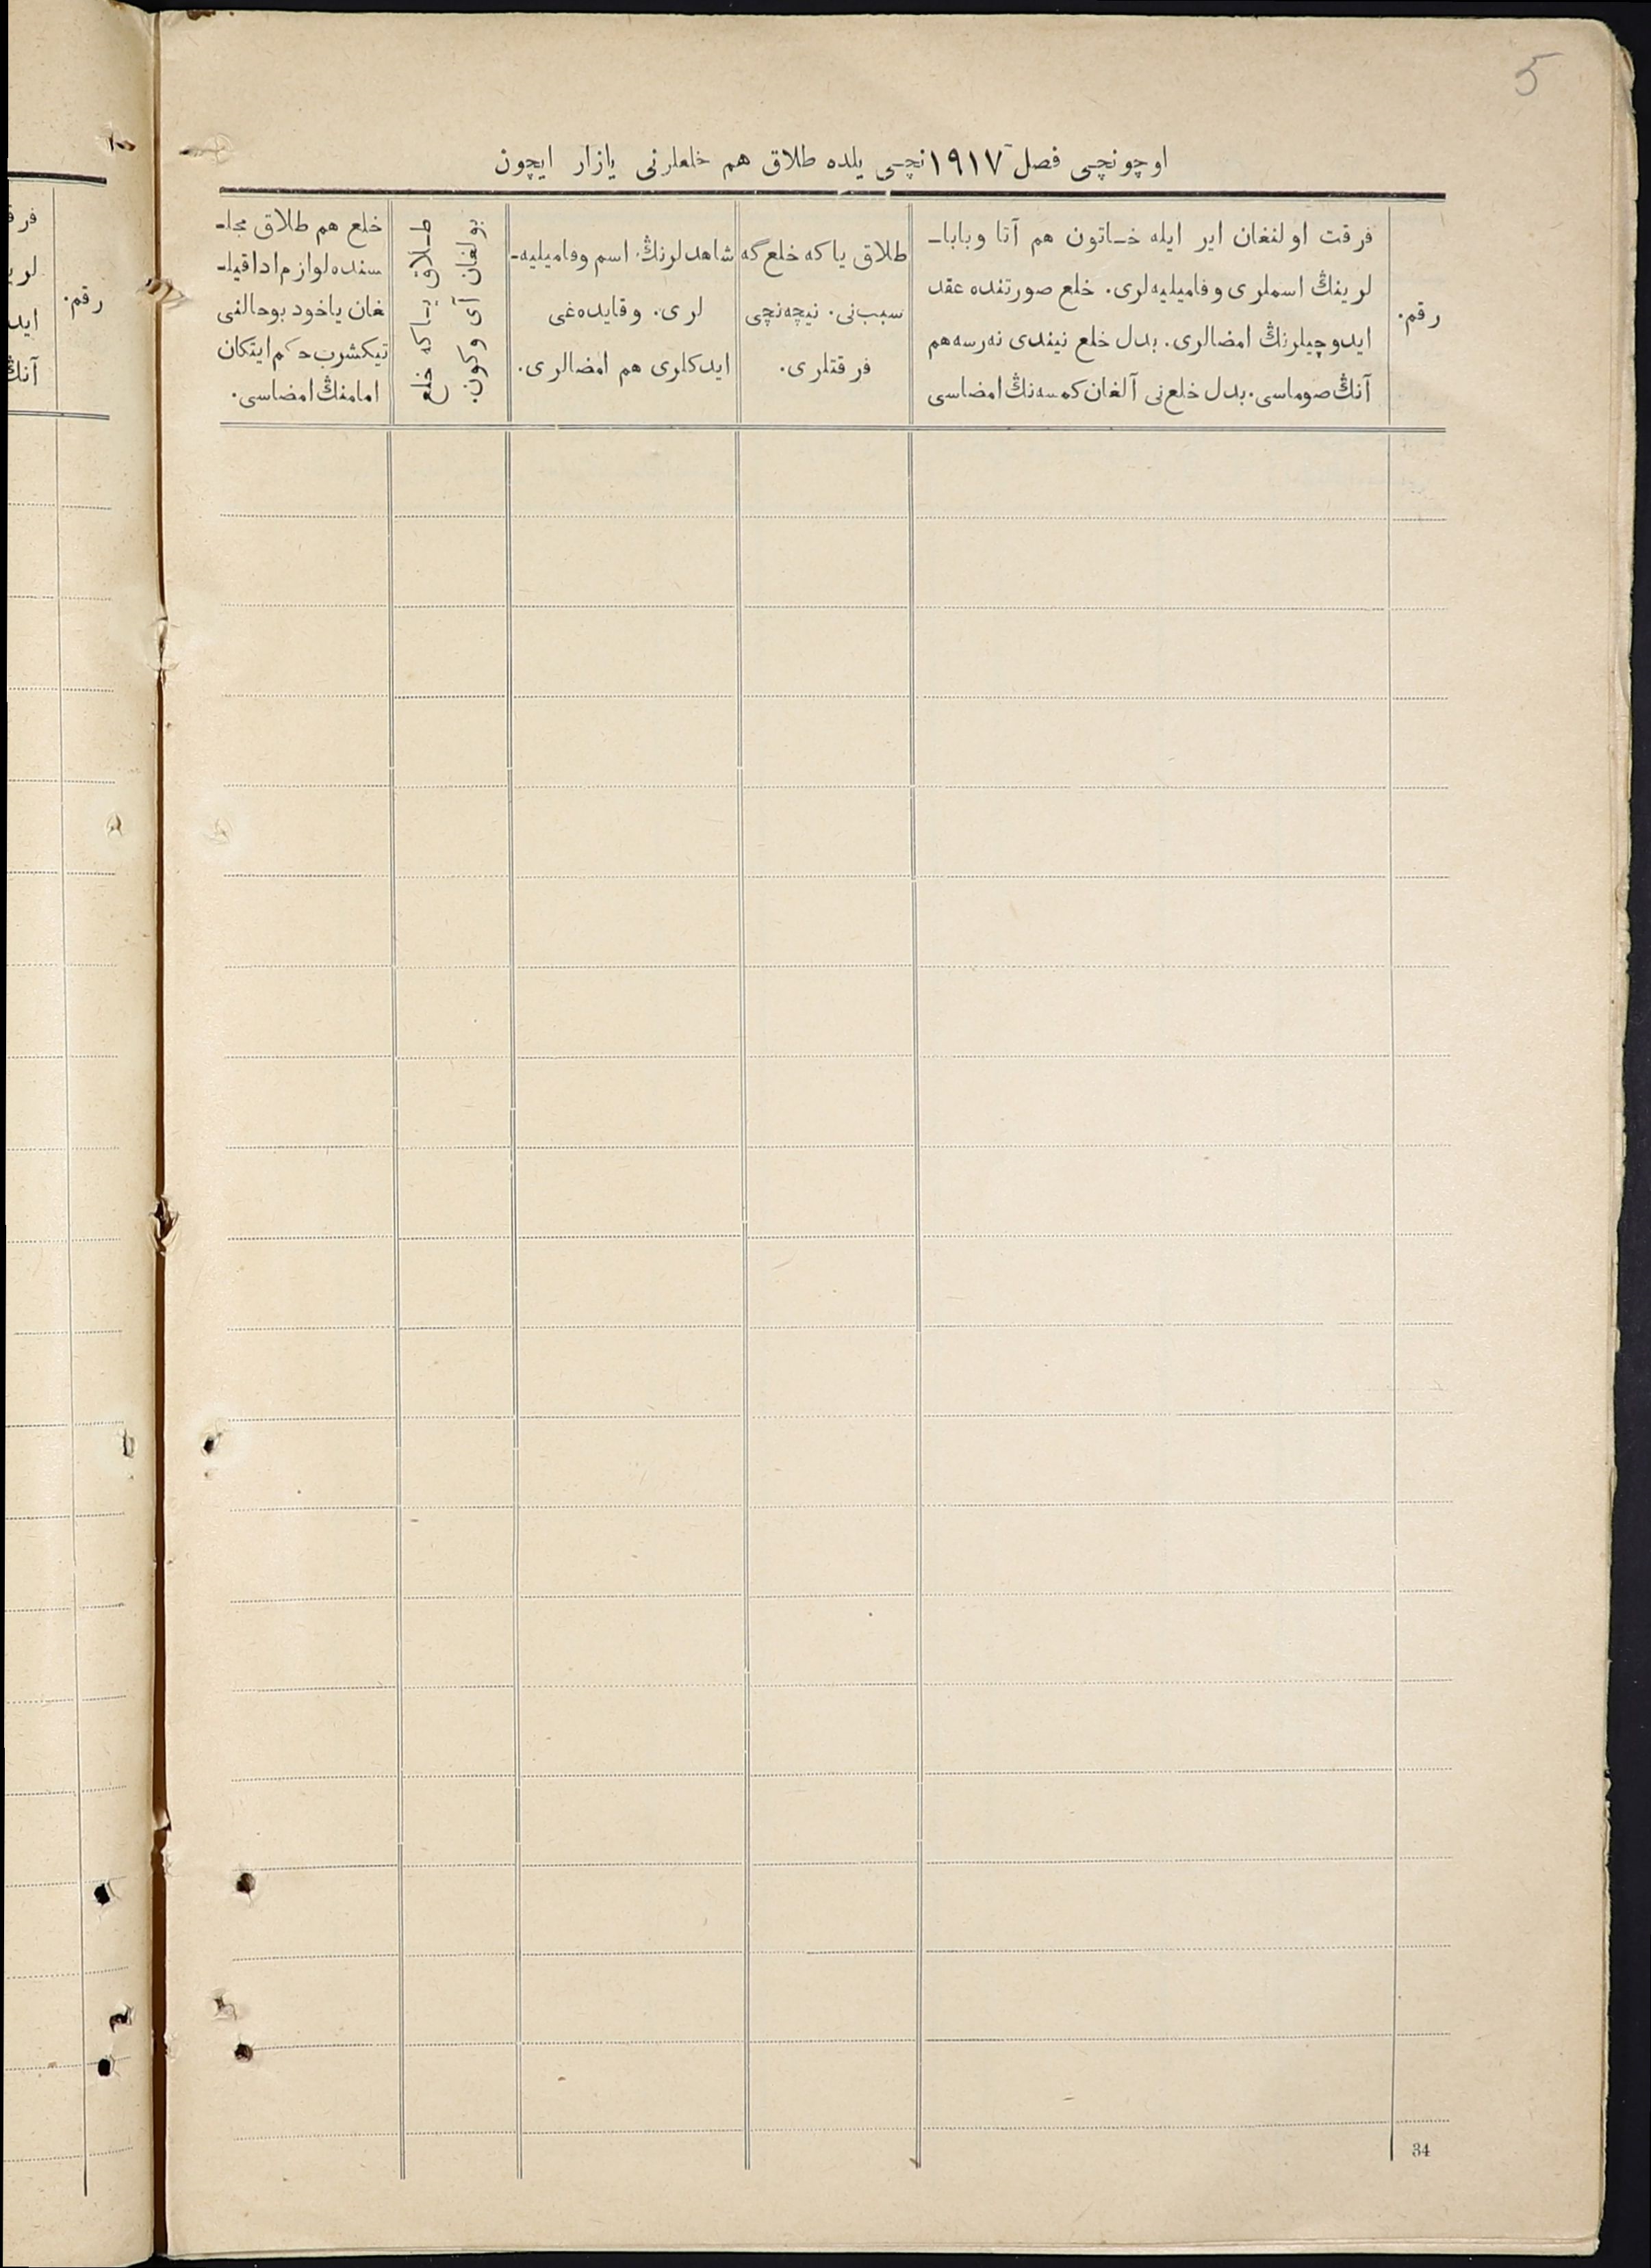 5
اوچونچی فصل ١٩١٧نچی یلده طلاق هم خلعلرنی یازار ایچون
رقم.
فرقت اولنغان ایر ایله خاتون هم آتا وبابا-
لرینڭ اسملری وفامیلیه‌لری. خلع صورتنده عقد
ایدوچیلرنڭ امضالری. بدل خلع نیندی نەرسە هم
آنڭ صوماسی. بدل خلع‌نی آلغان کمسه‌نڭ امضاسی
طلاق یا که خلع گه
سبب‌نی. نیچه‌نچی
فرقتلری.
شاهدلرنڭ اسم وفامیلیه-
لری. وقایده‌غی
ایدکلری هم امضالری.
طلاق یاکه خلع
بولغان آی وکون.
خلع هم طلاق مجل-
سنده لوازم ادا قیل-
غان یاخود بوحالنی
تیکشرب حکم ایتکان
امامنڭ امضاسی.
34
رقم.
فرق
لری
اید
آنڭ